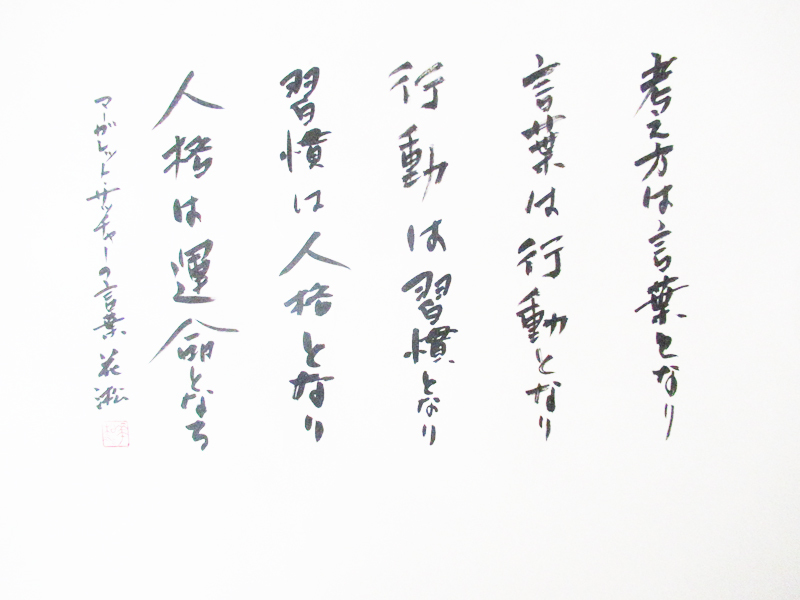 考え方は言葉となり
言葉は行動となり
行動は習慣となり
習慣は人格となり
人格は運命となる
マーガレット・サッチャーの言葉 花淞